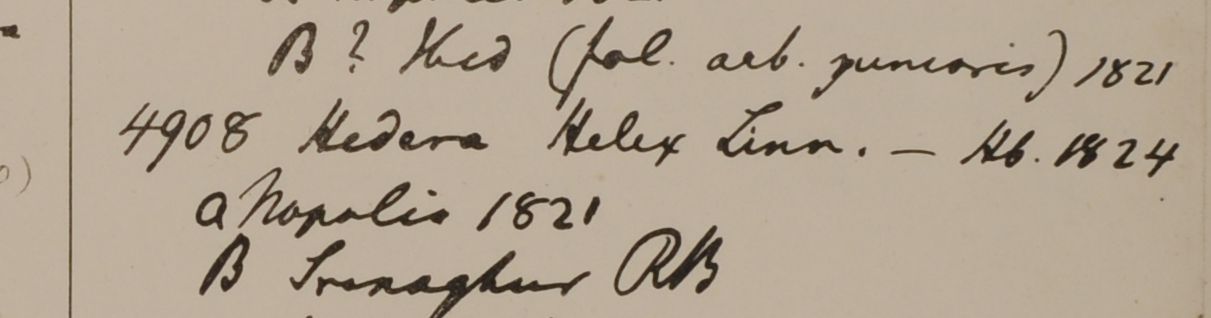 B ? Ibid (fol. arb. junioris) 1821
4908 Hedera Helex Linn. — Hb. 1824
a Napalia 1821
B Srenaghur RB